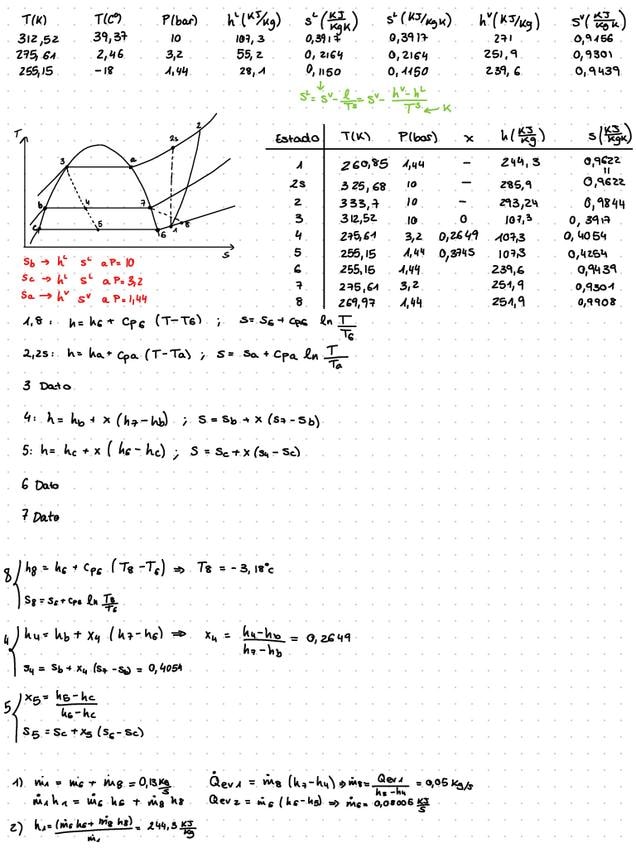 T(K) T(Cº) P(bar) h^L (KJ/Kg) s^L (KJ/KgK) s^L (KJ/KgK) h^V (KJ/Kg) s^V (KJ/KgK)
312,52 39,37 10 107,3 0,3917 0,3917 271 0,9156
275,61 2,46 3,2 55,2 0,2164 0,2164 251,9 0,9301
255,15 -18 1,44 28,1 0,1150 0,1150 239,6 0,9439
s^L = s^V - l/T^s = s^V - (h^V - h^L)/T^s ← K
T
3 a 2s 2
b 4 7 8
c 5 6 1
s
Sb → h^L s^L a P=10
Sc → h^L s^L a P=3,2
Sa → h^V s^V a P=1,44
Estado T(K) P(bar) x h(KJ/Kg) s(KJ/KgK)
1 260,85 1,44 - 244,3 0,9622
=
2s 325,68 10 - 285,9 0,9622
2 333,7 10 - 293,24 0,9844
3 312,52 10 0 107,3 0,3917
4 275,61 3,2 0,2649 107,3 0,4054
5 255,15 1,44 0,3745 107,3 0,4254
6 255,15 1,44 239,6 0,9439
7 275,61 3,2 251,9 0,9301
8 269,97 1,44 251,9 0,9908
1,8: h = h6 + Cp6 (T-T6) ; s = s6 + cp6 ln T/T6
2,2s: h = ha + cpa (T-Ta) ; s = sa + cpa ln T/Ta
3 Dato
4: h = hb + x (h7-hb) ; s = sb + x (s7-sb)
5: h = hc + x (h6-hc) ; s = sc + x (s4-sc)
6 Dato
7 Dato
8 { h8 = h6 + cp6 (T8-T6) ⇒ T8 = -3,18°c
s8 = s6 + cp6 ln T8/T6
4 { h4 = hb + x4 (h7-h6) ⇒ x4 = (h4-hb)/(h7-hb) = 0,2649
s4 = sb + x4 (s7-sb) = 0,4054
5 { x5 = (h5-hc)/(h6-hc)
s5 = sc + x5 (s6-sc)
1) ṁ1 = ṁ6 + ṁ8 = 0,13 Kg/s Q̇ev1 = ṁ8 (h7-h4) ⇒ ṁ8 = Qev1/(h8-h4) = 0,05 Kg/s
ṁ1 h1 = ṁ6 h6 + ṁ8 h8 Qev2 = ṁ6 (h6-h5) ⇒ ṁ6 = 0,08006 KJ/s
2) h1 = (ṁ6 h6 + ṁ8 h8)/ṁ1 = 244,3 KJ/Kg